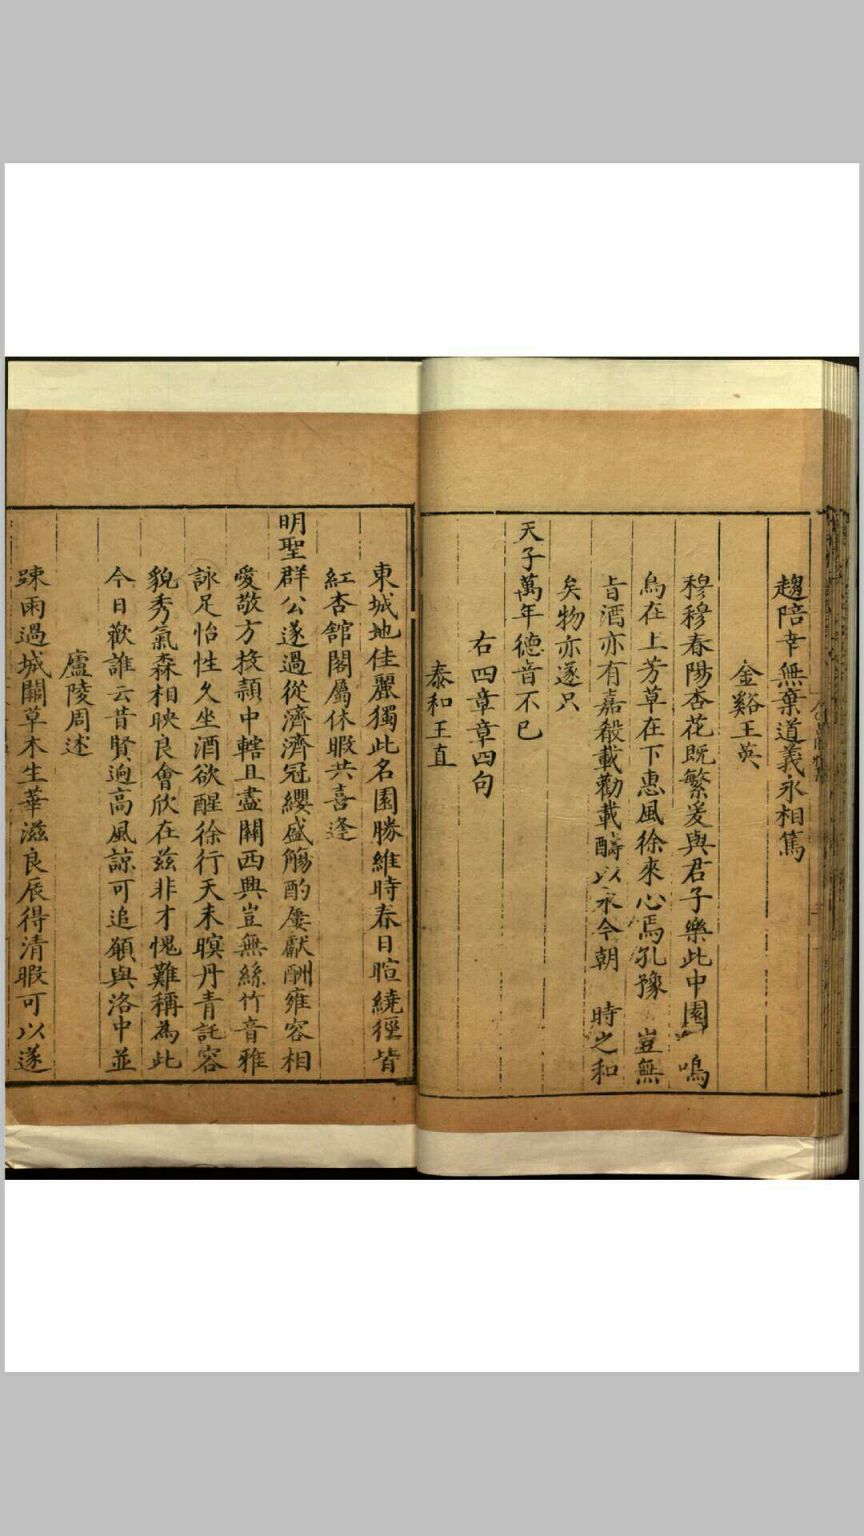 趨陪幸無棄道義永相篤
金谿王英
穆穆春陽杏花既繁爰與君子樂此中園 鳴
鳥在上芳草在下惠風徐來心焉孔豫 豈無
旨酒亦有嘉殽載勸載酬以永今朝 時之和
矣物亦遂只
天子萬年德音不已
右四章章四句
泰和王直
東城地佳麗獨此名園勝維時春日暄繞徑皆
紅杏舘閣屬休暇共喜逢
明聖群公遂過從濟濟冠纓盛觴酌屢獻酬雍容相
愛敬方投頴中轄且盡關西興豈無絲竹音雅
詠足怡性久坐酒欲醒徐行天未暝丹青託容
貌秀氣森相映良會欣在兹非才愧難稱為此
今日歡誰云昔賢逈高風諒可追願與洛中並
廬陵周述
踈雨過城闕草木生華滋良辰得清暇可以遂